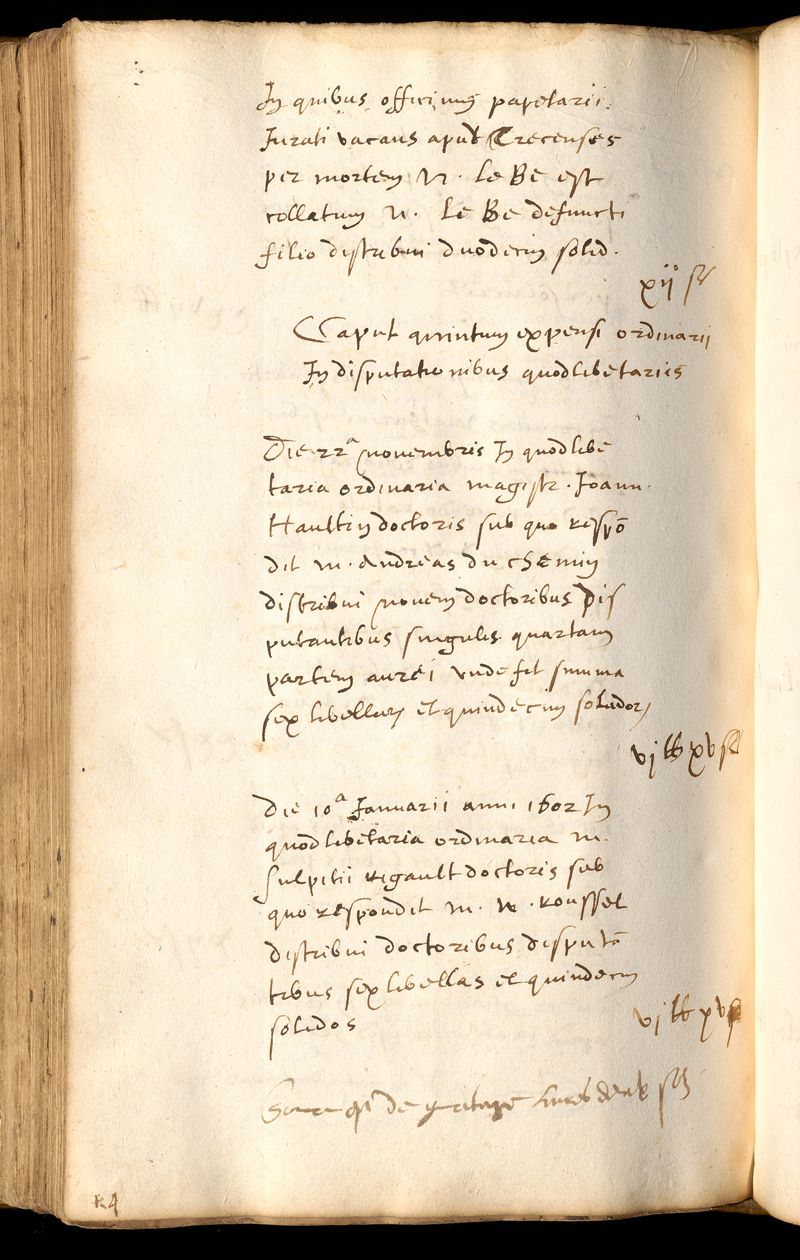 In quibus officium papetarii
Iurati vacans apud Trecenses
per mortem N. Le Be est
collatum N. Le Be defuncti
filio distribui duodecim solid.
xij s
Caput quintum expensi ordinarii
In disputationibus quodlibetariis
Die 22a novembris In quodlibe
taria ordinaria magistr. Ioann.
Haultin doctoris sub quo respõ
dit m. Andreas du chemin
distribui novem doctoribus dis
putantibus singulis quartam
partem aurei unde fit summa
sex libellar et quindecim solidor
vj lb xv s
Die 10a Ianuarii anni 1602 In
quodlibetaria ordinaria m.
sulpitii rigault doctoris sub
quo respondit m. N. roussel
distribui doctoribus disputã
tibus sex libellas et quindecim
solidos
vj lb xv s
de
K4